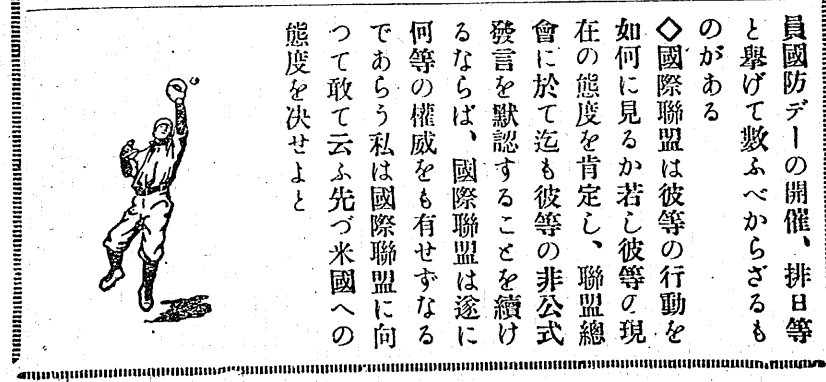 員國防デーの開催、排日等
と擧げて數ふべからざるも
のがある
◇國際聯盟は彼等の行動を
如何に見るか若し彼等の現
在の態度を肯定し、聯盟總
會に於て迄も彼等の非公式
發言を默認することを續け
るならば、國際聯盟は遂に
何等の權威をも有せずなる
であらう私は國際聯盟に向
つて敢て云ふ先づ米國への
態度を決せよと